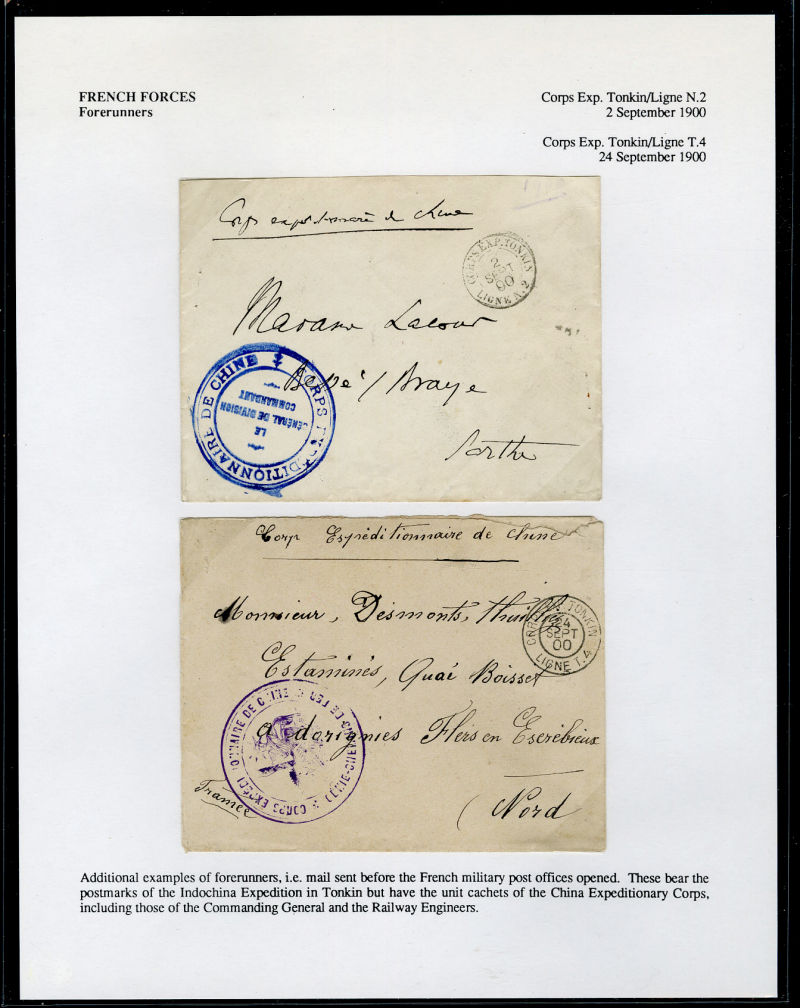 FRENCH FORCES
Forerunners
Corps Exp. Tonkin/Ligne N.2
2 September 1900
Corps Exp. Tonkin/Ligne T.4
24 September 1900
Corps expéditionnaire de Chine
CORPS EXP. TONKIN
2
SEPT
00
LIGNE N. 2
Madame Lacour
Bessé s/ Braye
Sarthe
CORPS EXPÉDITIONNAIRE DE CHINE
LE
GÉNÉRAL DE DIVISION
COMMANDANT
Corp Expéditionnaire de Chine
Monsieur, Désmonts,
CORPS EXP. TONKIN
24
SEPT
00
LIGNE T. 4
Estaminés, Quai Boisset
a dorignies Flers en Escrébieux
CORPS EXPÉDITIONNAIRE DE CHINE
(Nord
Additional examples of forerunners, i.e. mail sent before the French military post offices opened. These bear the
postmarks of the Indochina Expedition in Tonkin but have the unit cachets of the China Expeditionary Corps,
including those of the Commanding General and the Railway Engineers.